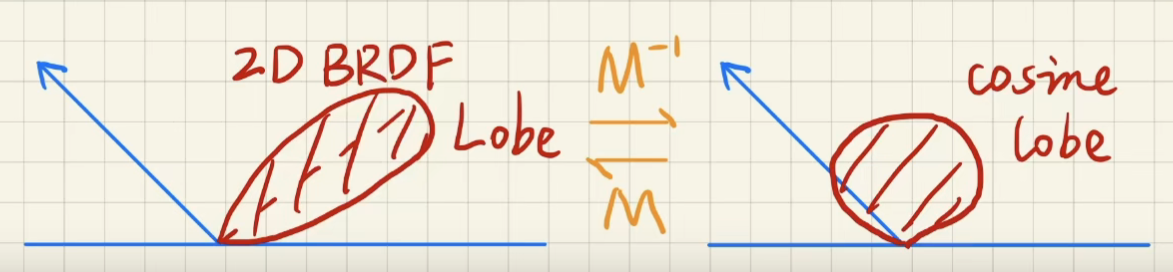 2D BRDF
Lobe
M⁻¹
M
cosine
lobe